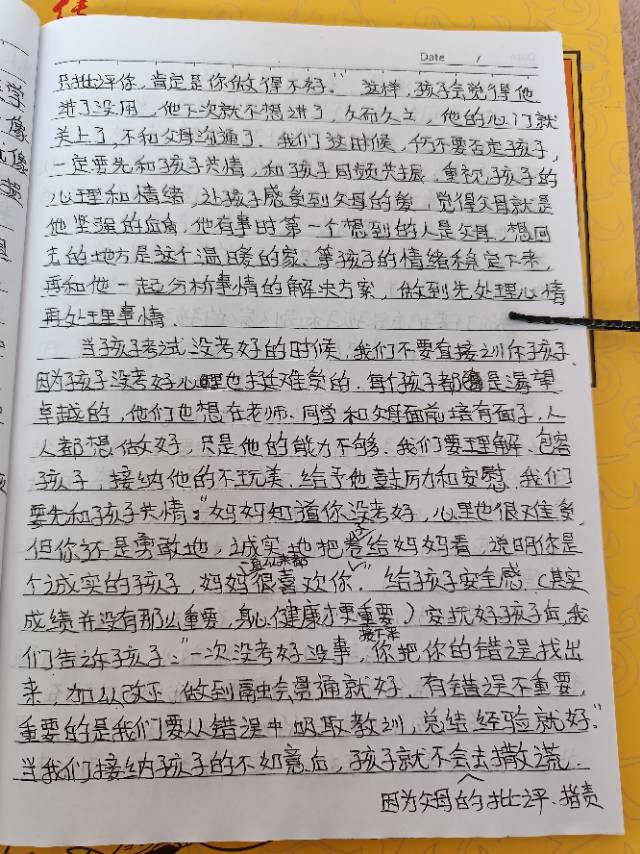 Date /
只批评你，肯定是你做得不好。”这样，孩子会觉得他
讲了没用，他下次就不想讲了，久而久之，他的心门就
关上了，不和父母沟通了。我们这时候，仍不要否定孩子，
一定要先和孩子共情，和孩子同频共振，重视孩子的
心理和情绪，让孩子感受到父母的爱，觉得父母就是
他坚强的后盾，他有事时第一个想到的人是父母，想回
去的地方是这个温暖的家。等孩子的情绪稳定下来，
再和他一起分析事情的解决方案，做到先处理心情
再处理事情．
当孩子考试没考好的时候，我们不要直接训斥孩子．
因为孩子没考好心里也挺难受的．每个孩子都是渴望
卓越的，他们也想在老师、同学和父母面前培有面子，人
人都想做好，只是他的能力不够．我们要理解、包容
孩子，接纳他的不玩美．给予他鼓历力和安慰．我们
要先和孩子共情：“妈妈知道你没考好，心里也很难受，
但你还是勇敢地，诚实地把卷给妈妈看，说明你是
个诚实的孩子，妈妈很喜欢你．”给孩子安全感．（其实
成绩并没有那么重要，身心健康才更重要）安抚好孩子后，我
们告诉孩子：“一次没考好没事，接下来你把你的错误找出
来，加以改正，做到融会贯通就好．有错误不重要，
重要的是我们要从错误中吸取教训，总结经验就好．”
当我们接纳孩子的不如意后，孩子就不会去撒谎．
因为父母的批评、指责
学
像
像